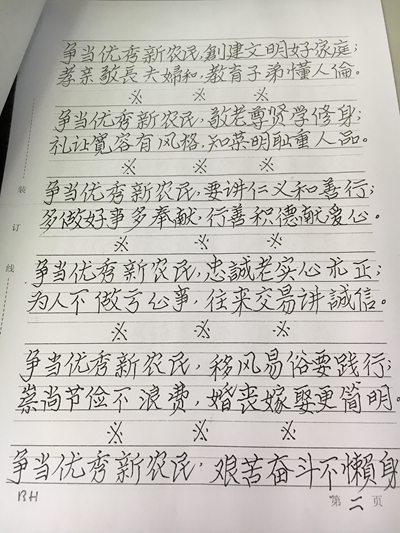 争当优秀新农民,創建文明好家庭;
孝亲敬長夫婦和,教育子弟懂人倫。
※ ※ ※
争当优秀新农民,敬老尊贤学修身;
礼让寬容有风格,知荣明耻重人品。
※ ※ ※
争当优秀新农民,要讲仁义和善行;
多做好事多奉献,行善积德献爱心。
※ ※ ※
争当优秀新农民,忠誠老实心朮正;
为人不做亏心事,往来交易讲誠信。
※ ※ ※
争当优秀新农民,移风易俗要践行;
崇尚节俭不浪费,婚丧嫁娶更简明。
※ ※ ※
争当优秀新农民,艰苦奋斗不懒身
装
订
线
BH
第二页